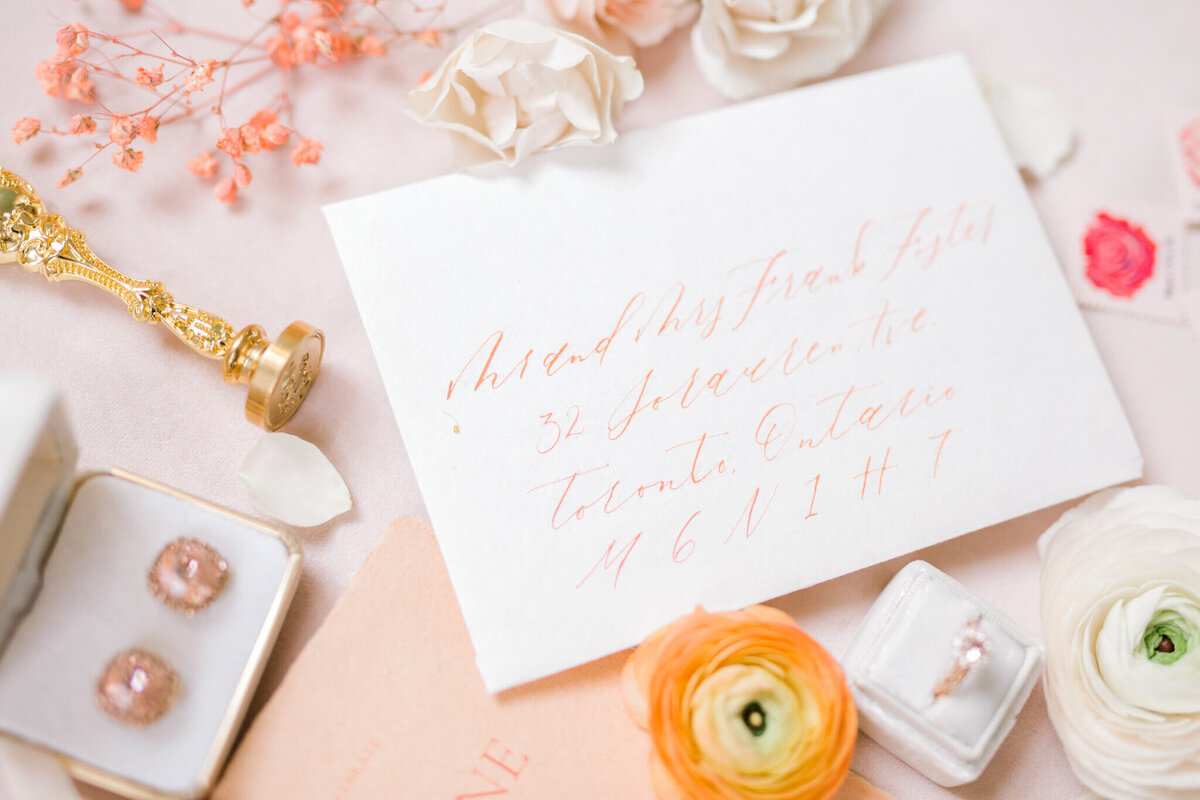 Mr and Mrs Frank Fister
32 Sorauren Ave.
Toronto, Ontario
M6N 1H7